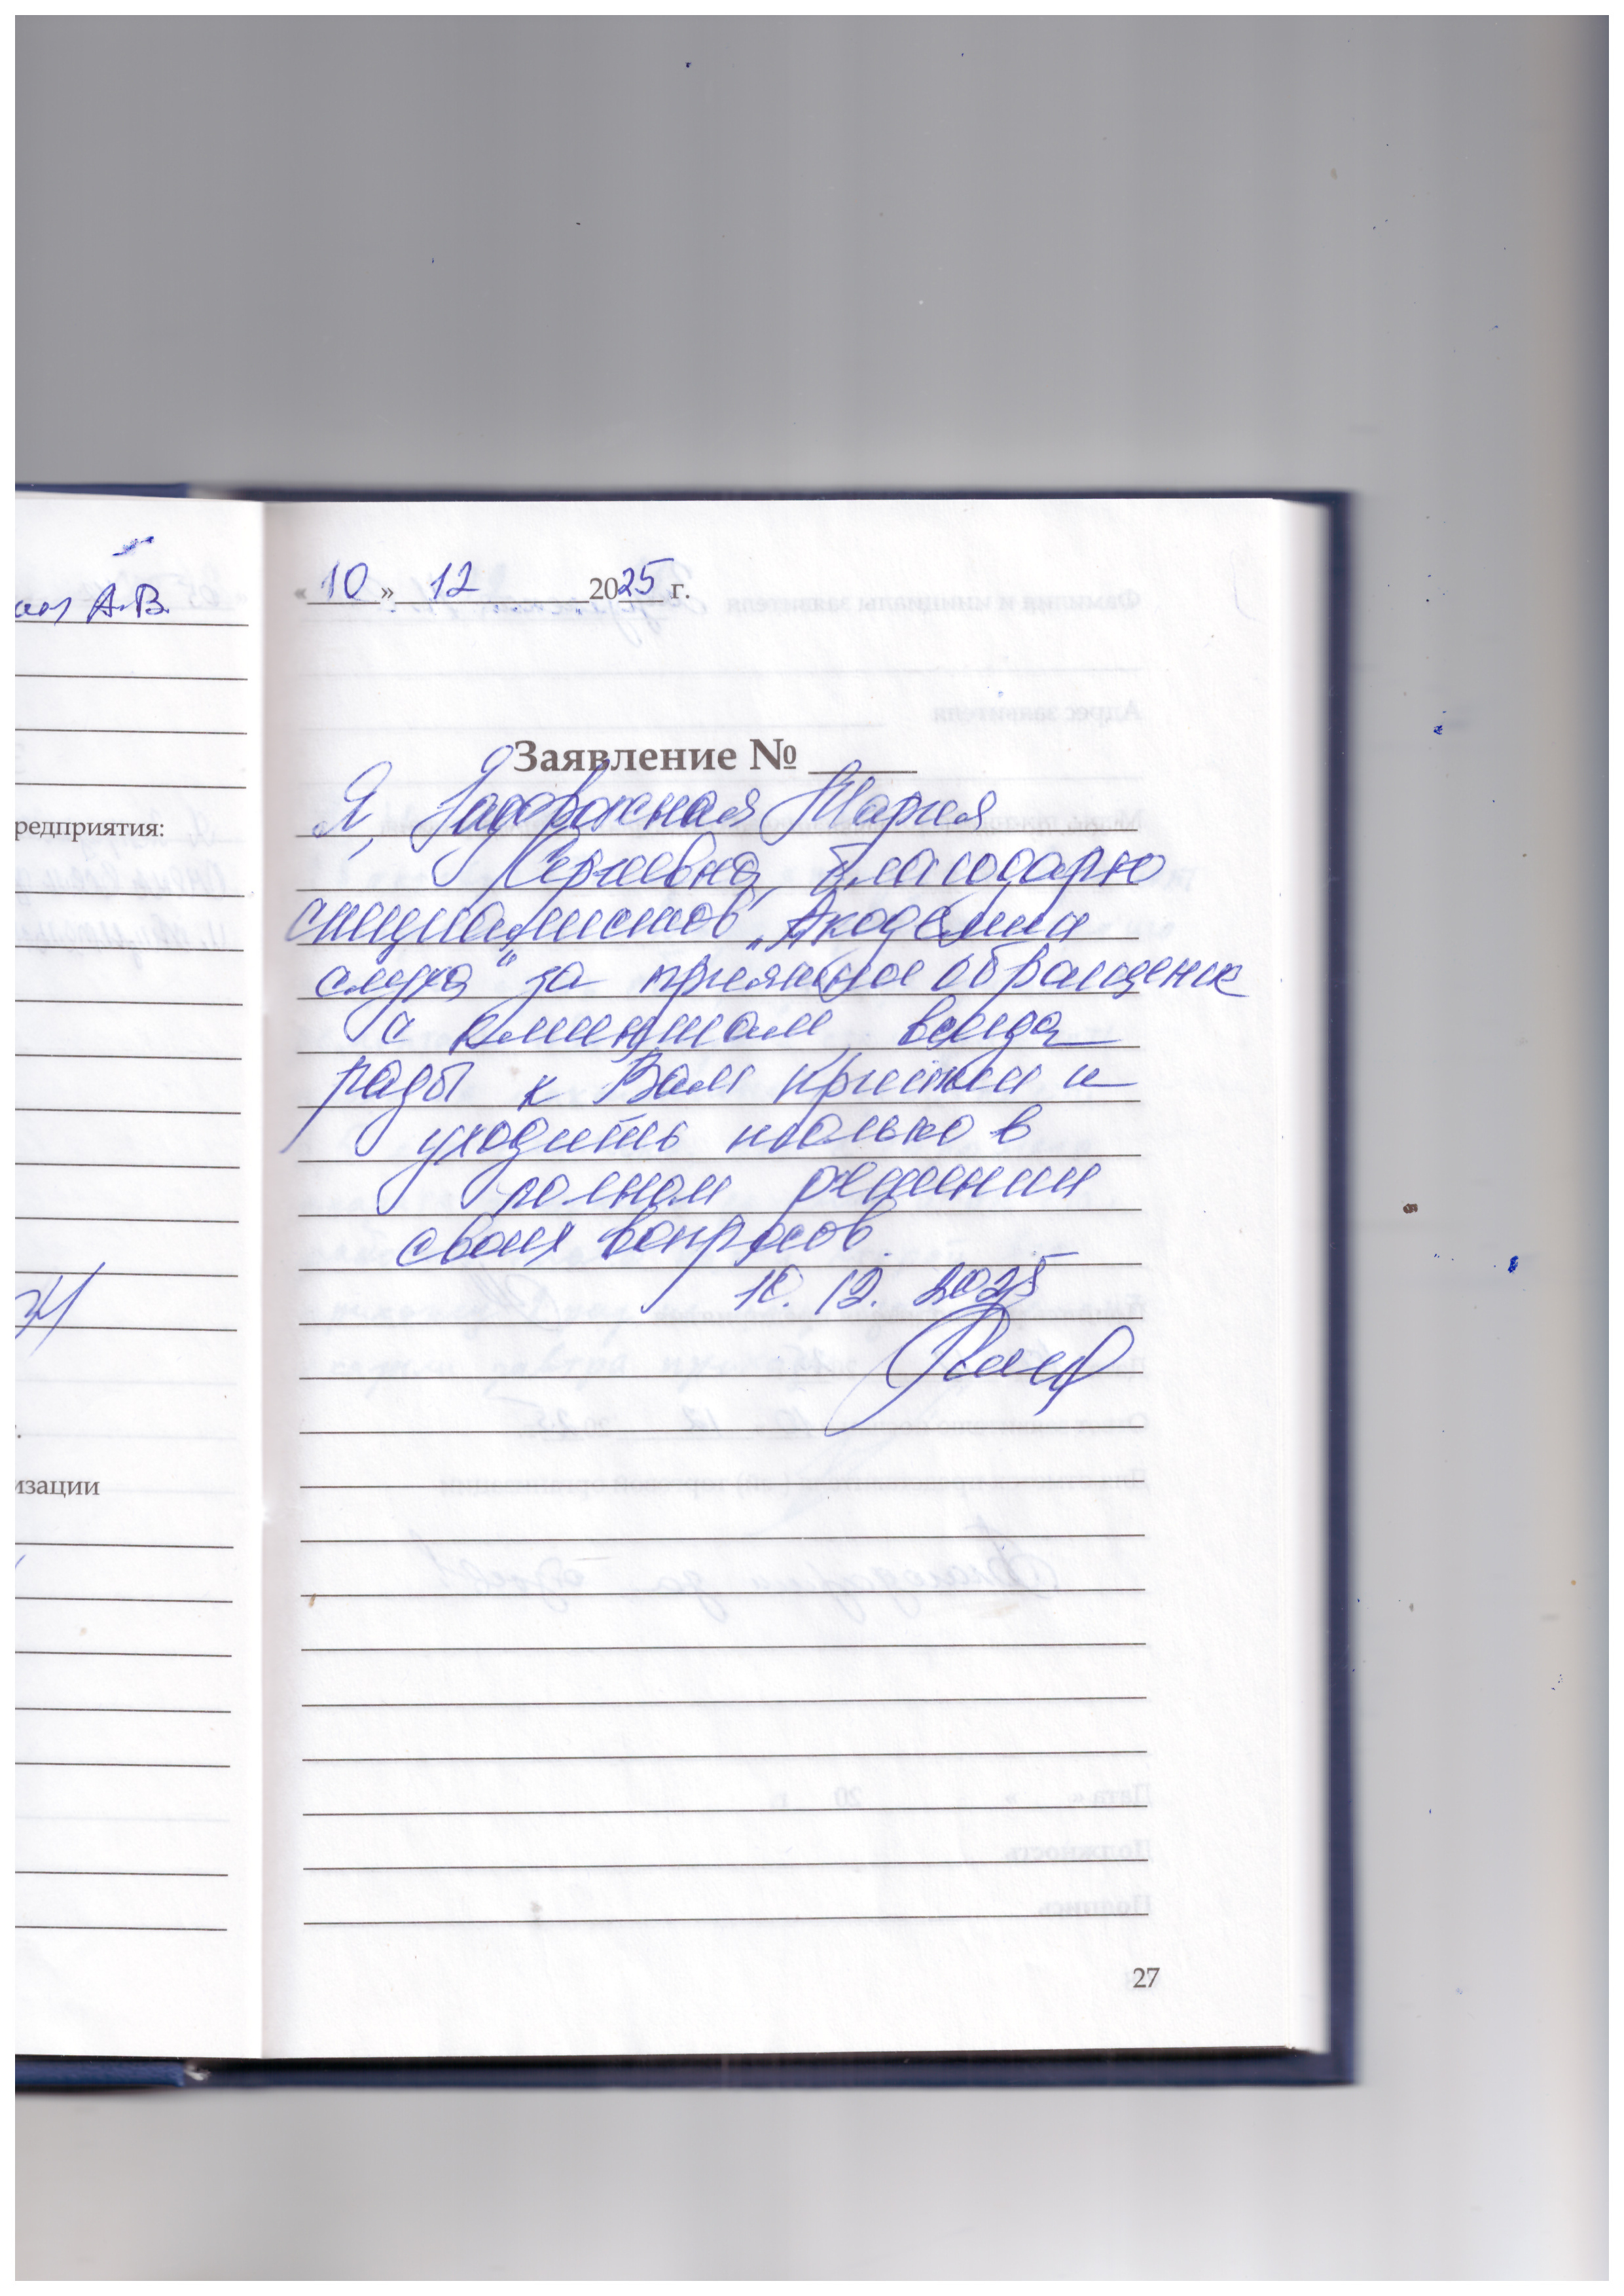 А.В.
редприятия:
изации
«10» 12 2025 г.
Заявление №
Я, Задорожная Мария
Сергеевна, благодарю
специалистов "Академии
слуха" за приятное обращение
с клиентами, всегда
рады к Вам прийти и
уходить только в
полном решении
своих вопросов.
10.12.2025
27